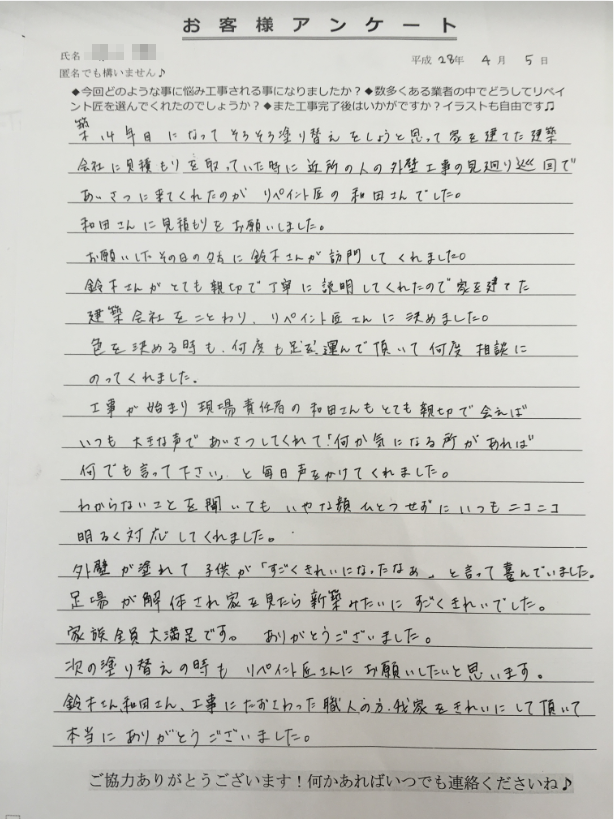 お客様アンケート
氏名
平成 28年 4月 5日
匿名でも構いません♪
◆今回どのような事に悩み工事される事になりましたか？◆数多くある業者の中でどうしてリペイ
ント匠を選んでくれたのでしょうか？◆また工事完了後はいかがですか？イラストも自由です♫
築14年目になってそろそろ塗り替えをしようと思って家を建てた建築
会社に見積もりを取っていた時に近所の人の外壁工事の見廻り巡回で
あいさつに来てくれたのがリペイント匠の和田さんでした。
和田さんに見積もりをお願いしました。
お願いしたその日の夕方に鈴木さんが訪問してくれました。
鈴木さんがとても親切で丁寧に説明してくれたので家を建てた
建築会社をことわり、リペイント匠さんに決めました。
色を決める時も、何度も足を運んで頂いて何度相談に
のってくれました。
工事が始まり現場責任者の和田さんもとても親切で会えば
いつも大きな声であいさつしてくれて「何か気になる所があれば
何でも言って下さい」と毎日声をかけてくれました。
わからないことを聞いてもいやな顔ひとつせずにいつもニコニコ
明るく対応してくれました。
外壁が塗れて子供が「すごくきれいになったなぁ」と言って喜んでいました。
足場が解体され家を見たら新築みたいにすごくきれいでした。
家族全員大満足です。ありがとうございました。
次の塗り替えの時もリペイント匠さんにお願いしたいと思います。
鈴木さん、和田さん、工事にたずさわった職人の方、我家をきれいにして頂いて
本当にありがとうございました。
ご協力ありがとうございます！何かあればいつでも連絡くださいね♪